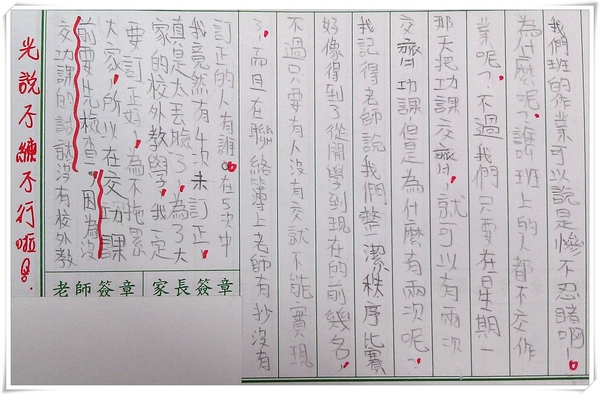 我們班的作業可以說是慘不忍睹啊!
為什麼呢?誰叫班上的人都不交作
業呢?不過我們只要在星期一
那天把功課交齊,就可以有兩次
交齊功課但是為什麼有兩次呢?
我記得老師說我們整潔秩序比賽
好像得到了從開學到現在的前幾名,
不過只要有人沒有交就不能實現
了,而且在聯絡簿上老師有抄沒有
訂正的人有誰。在5次中
我竟然有4次未訂正,
真是太丟臉了,為了大
家的校外教學,我一定
要訂正好,為不拖累
大家,所以在交功課
前要先檢查,因為沒
交功課的話就沒有校外教
家長簽章
老師簽章
光說不練不行啦